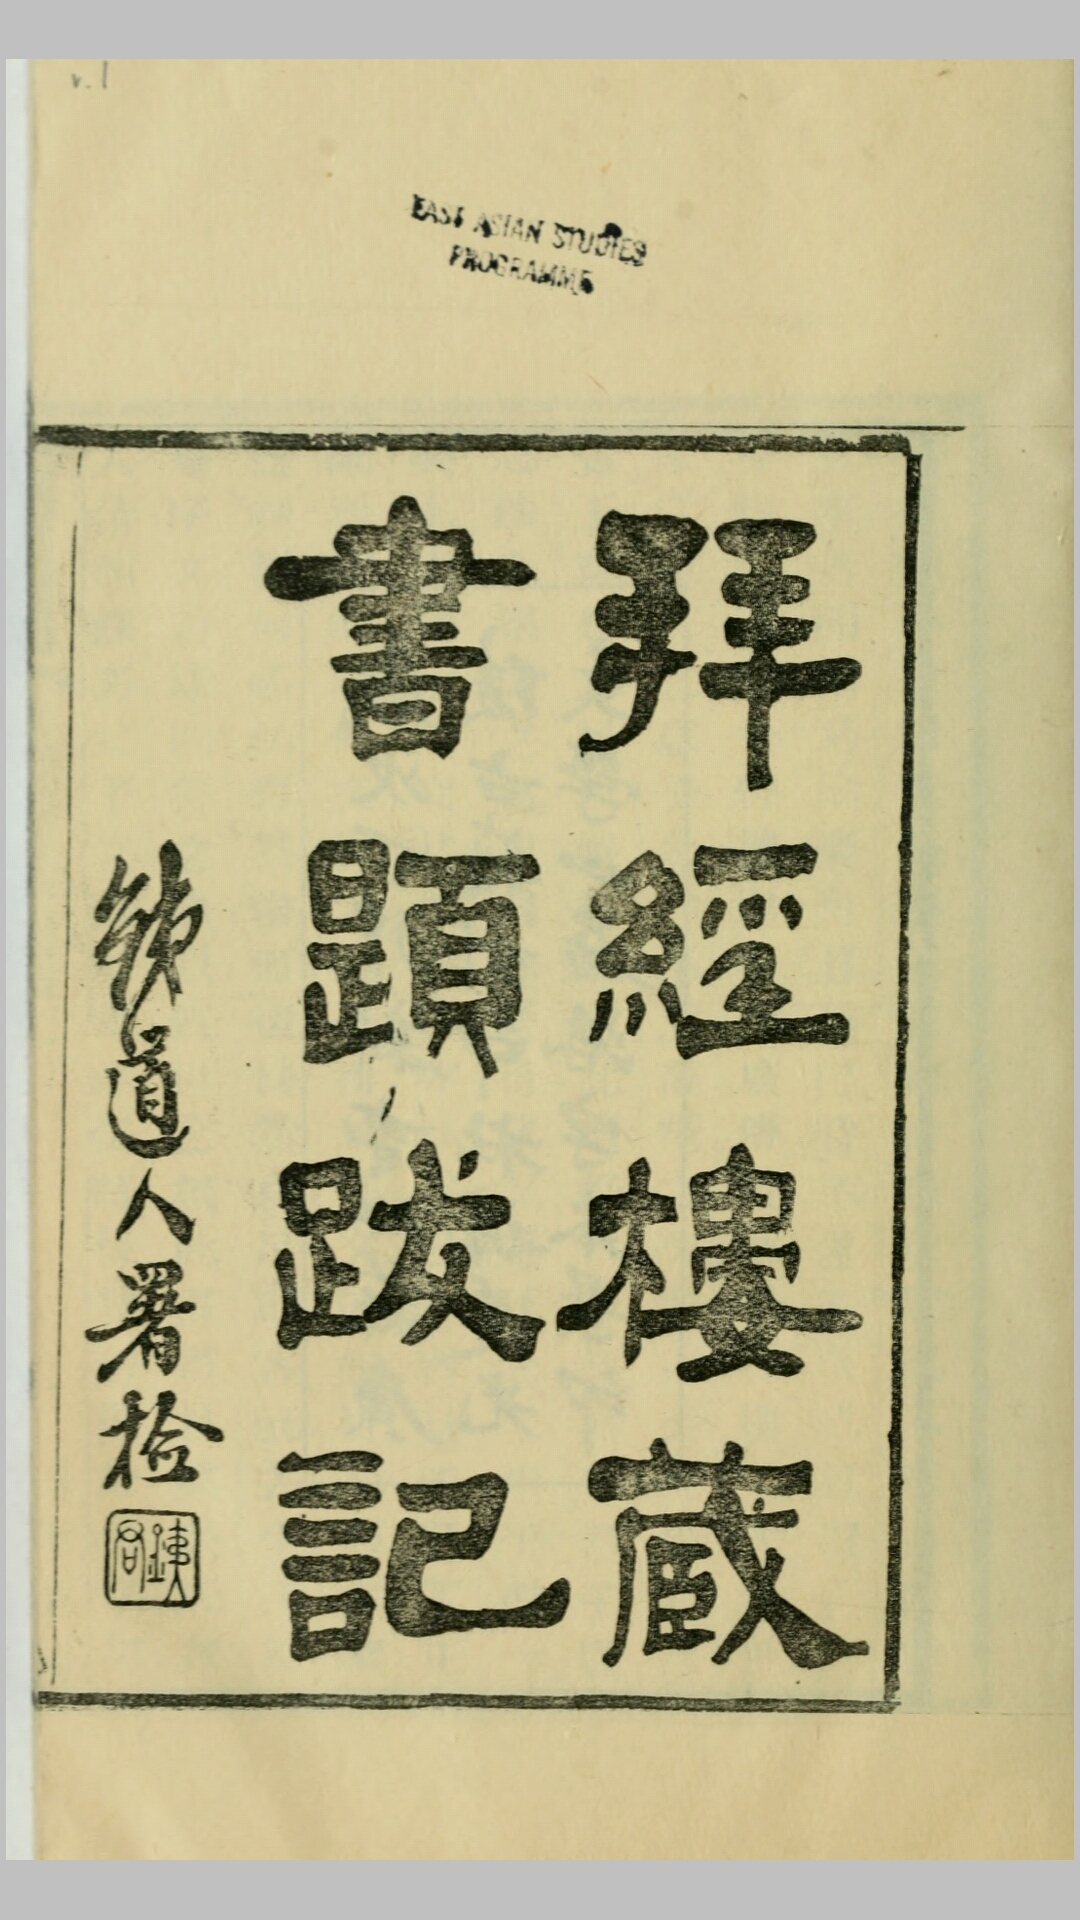 v.1
EAST ASIAN STUDIES
PROGRAMME
拜經樓藏
書題跋記
鐵道人署檢